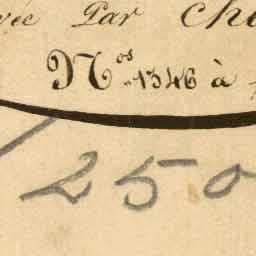 vée Par Ch
Nos. 1346 à
250